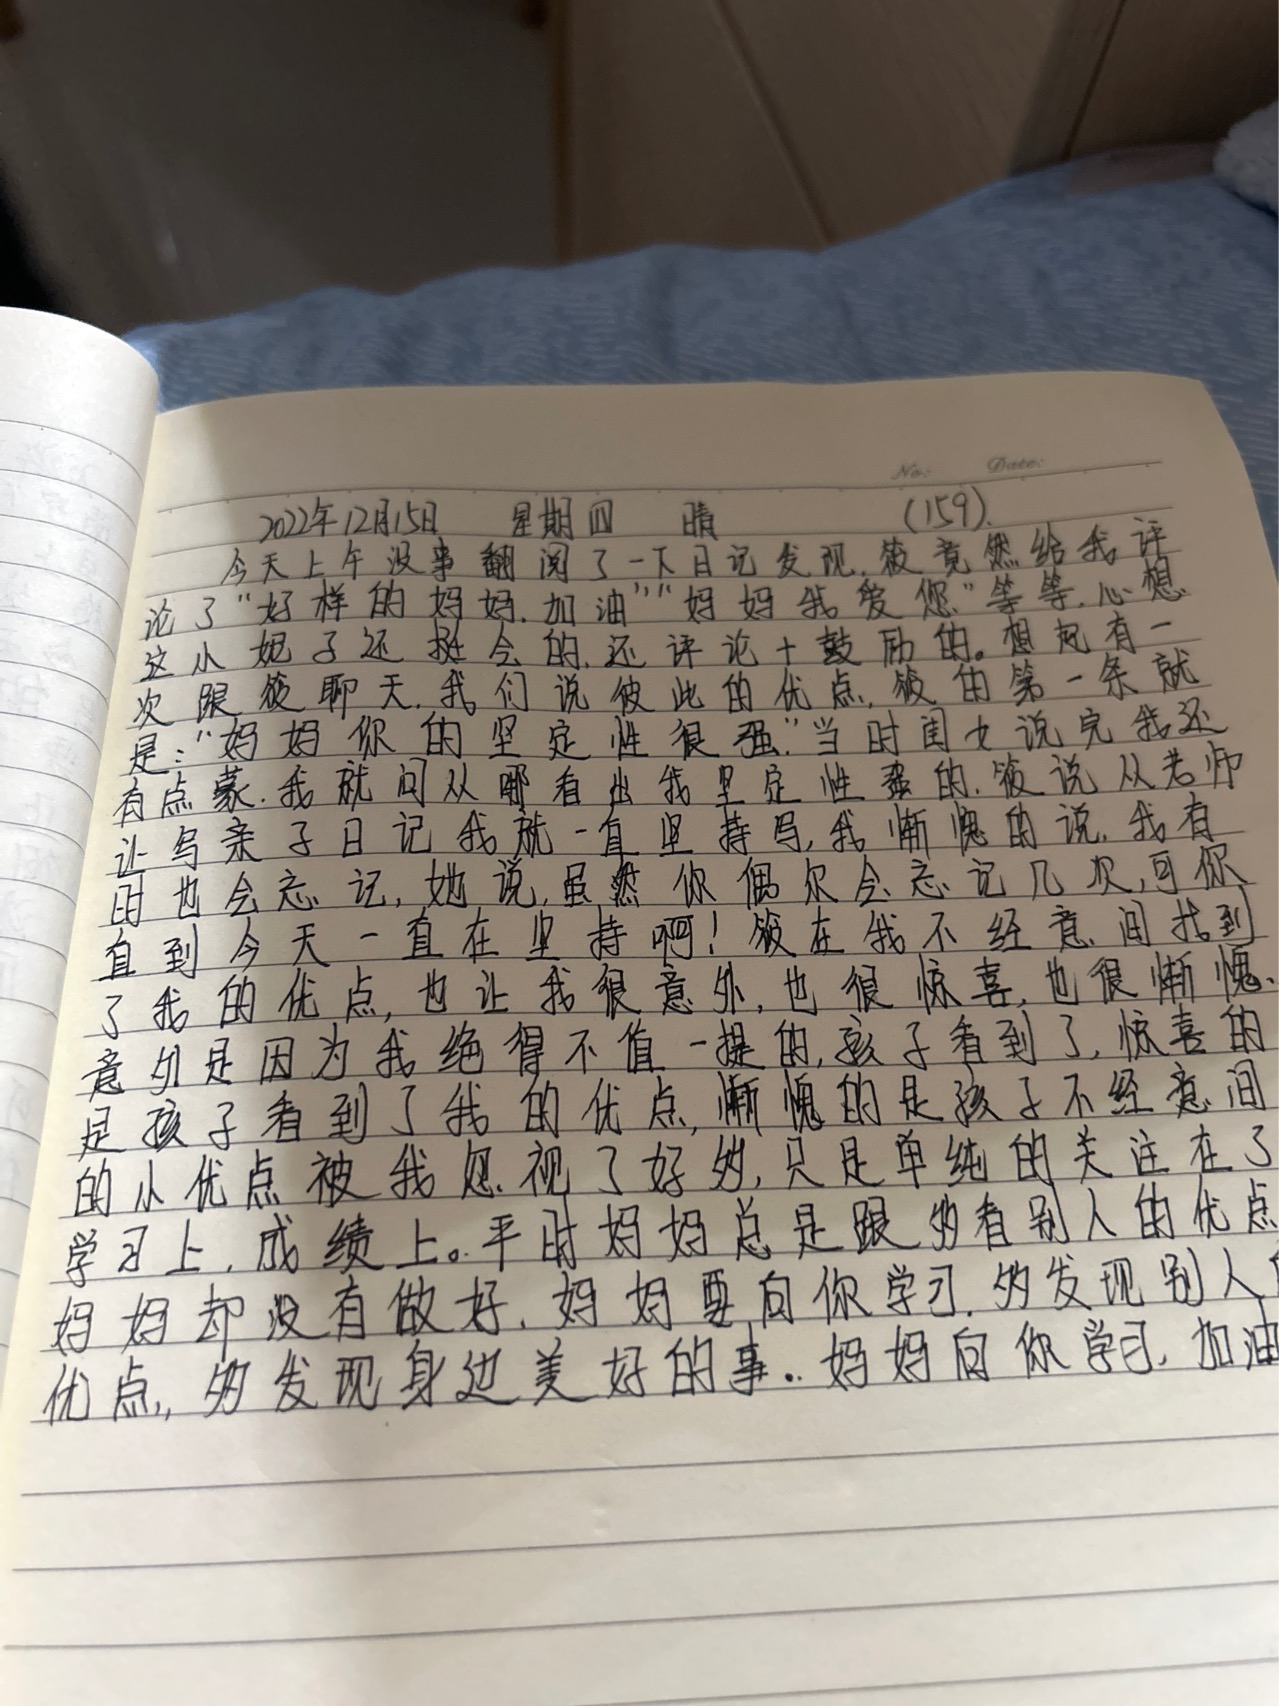 No: Date:
2022年12月15日 星期四 晴 (159).
今天上午没事翻阅了一下日记发现,筱竟然给我评
论了“好样的妈妈.加油”“妈妈我爱您”等等.心想
这小妮子还挺会的.还评论+鼓励的。想起有一
次跟筱聊天.我们说彼此的优点,筱的第一条就
是:“妈妈你的坚定性很强.”当时闺女说完我还
有点蒙.我就问从哪看出我坚定性强的.筱说从老师
让写亲子日记我就一直坚持写,我惭愧的说.我有
时也会忘记,她说,虽然你偶尔会忘记几次,可你
直到今天一直在坚持啊!筱在我不经意间找到
了我的优点,也让我很意外,也很惊喜,也很惭愧.
意外是因为我绝得不值一提的,孩子看到了,惊喜的
是孩子看到了我的优点,惭愧的是孩子不经意间
的小优点被我忽视了好多,只是单纯的关注在了
学习上,成绩上。平时妈妈总是跟多看别人的优点
妈妈却没有做好,妈妈要向你学习,多发现别人的
优点,多发现身边美好的事..妈妈向你学习,加油